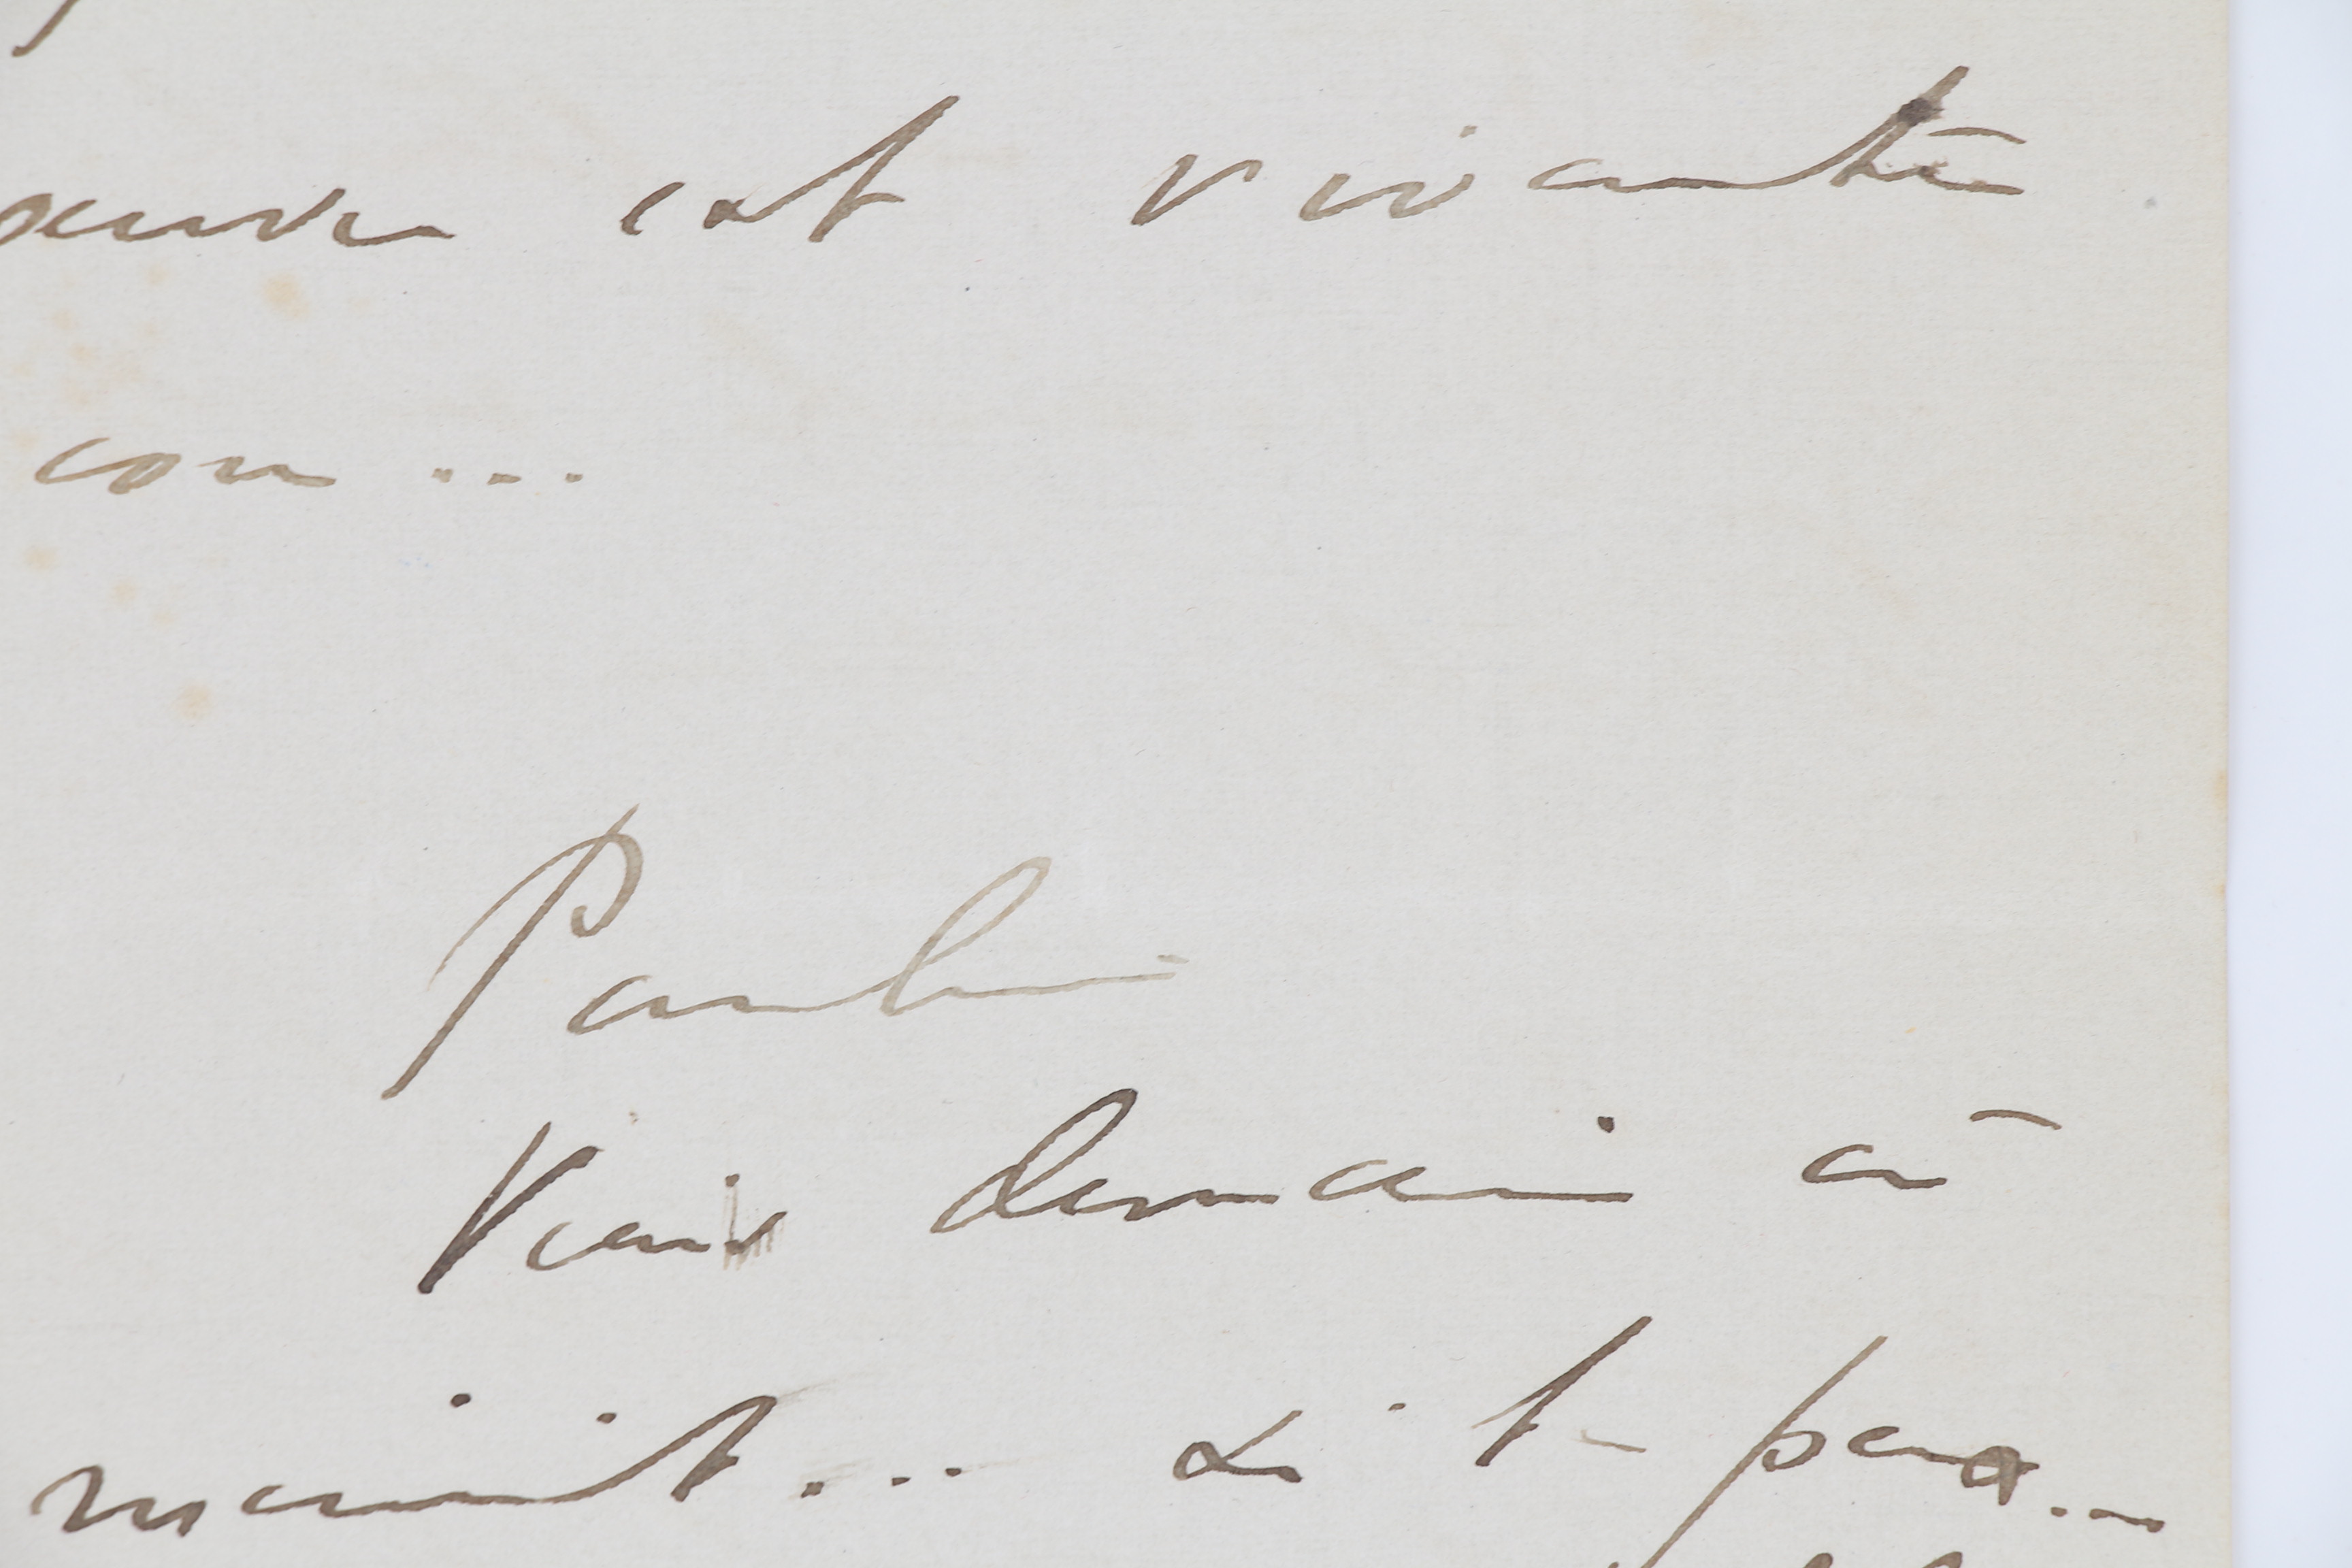 est vivante
con...
Pauline
Viens demain à
minuit... si tu peux...